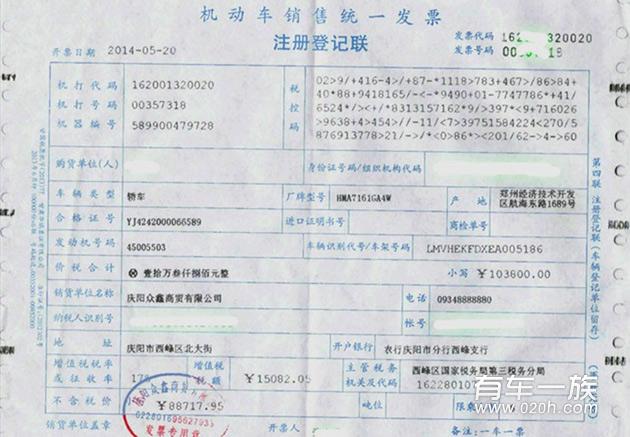 机动车销售统一发票
注册登记联
开票日期 2014-05-20
发票代码 162 320020
发票号码 00 18
机打代码 162001320020
机打号码 00357318
机器编号 589900479728
税控码
02>9/+416-4>/+87-*1118>783+467>/86>84+
40*88+9418165/-<-*9490+01-7747786*+41/
6524*/><+/*8313157162*9/>397*<9+716026
>9638+4>454>//-11/<7>39751584224<270/5
876913778>21/->/*<0>86*><201/62->4->60
购货单位(人)
身份证号码/组织机构代码
车辆类型 轿车
厂牌型号 HMA7161GA4W
产地 郑州经济技术开发区航海东路1689号
合格证号 YJ4242000066589
进口证明书号
商检单号
发动机号码 45005503
车辆识别代号/车架号码 LMVHEKFDXEA005186
价税合计 ⊗ 壹拾万叁仟捌佰元整
小写 ￥103800.00
销货单位名称 庆阳众鑫商贸有限公司
电话 09348888880
纳税人识别号
帐号
地址 庆阳市西峰区北大街
开户银行 农行庆阳市分行西峰支行
增值税税率或征收率 17%
增值税税额 ￥15082.05
主管税务机关及代码 西峰区国家税务局第三税务分局
162280107
不含税价 ￥88717.95
吨位
限乘
销货单位盖章
开票人
备注:一车一票
发票专用章
第四联 注册登记联(车辆登记单位留存)
有车一族
www.020h.com